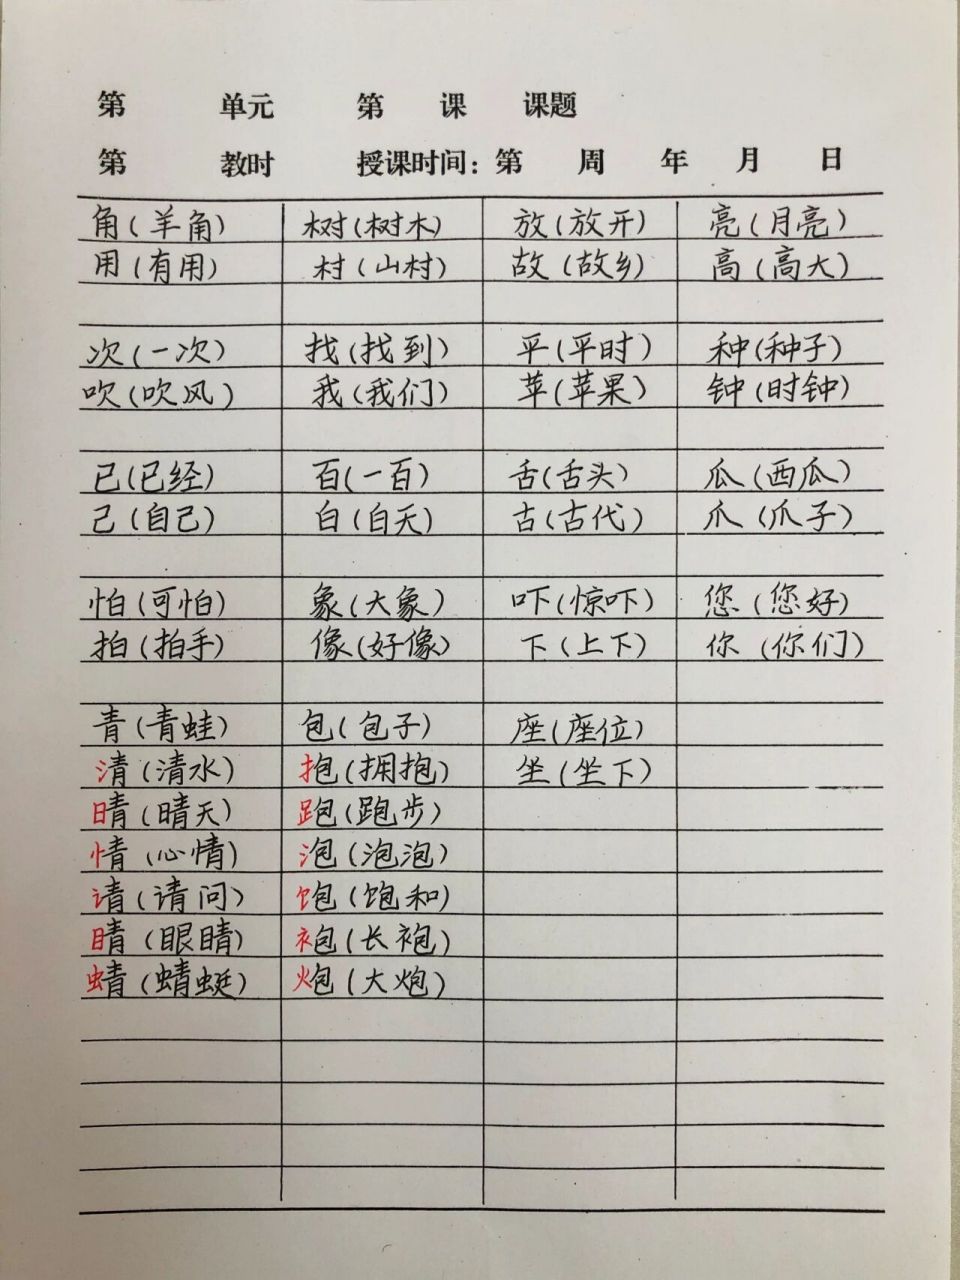 第 单元 第 课 课题
第 教时 授课时间：第 周 年 月 日
角(羊角) 树(树木) 放(放开) 亮(月亮)
用(有用) 村(山村) 故(故乡) 高(高大)
次(一次) 找(找到) 平(平时) 种(种子)
吹(吹风) 我(我们) 苹(苹果) 钟(时钟)
已(已经) 百(一百) 舌(舌头) 瓜(西瓜)
己(自己) 白(白天) 古(古代) 爪(爪子)
怕(可怕) 象(大象) 吓(惊吓) 您(您好)
拍(拍手) 像(好像) 下(上下) 你(你们)
青(青蛙) 包(包子) 座(座位)
清(清水) 抱(拥抱) 坐(坐下)
晴(晴天) 跑(跑步)
情(心情) 泡(泡泡)
请(请问) 饱(饱和)
睛(眼睛) 袍(长袍)
蜻(蜻蜓) 炮(大炮)